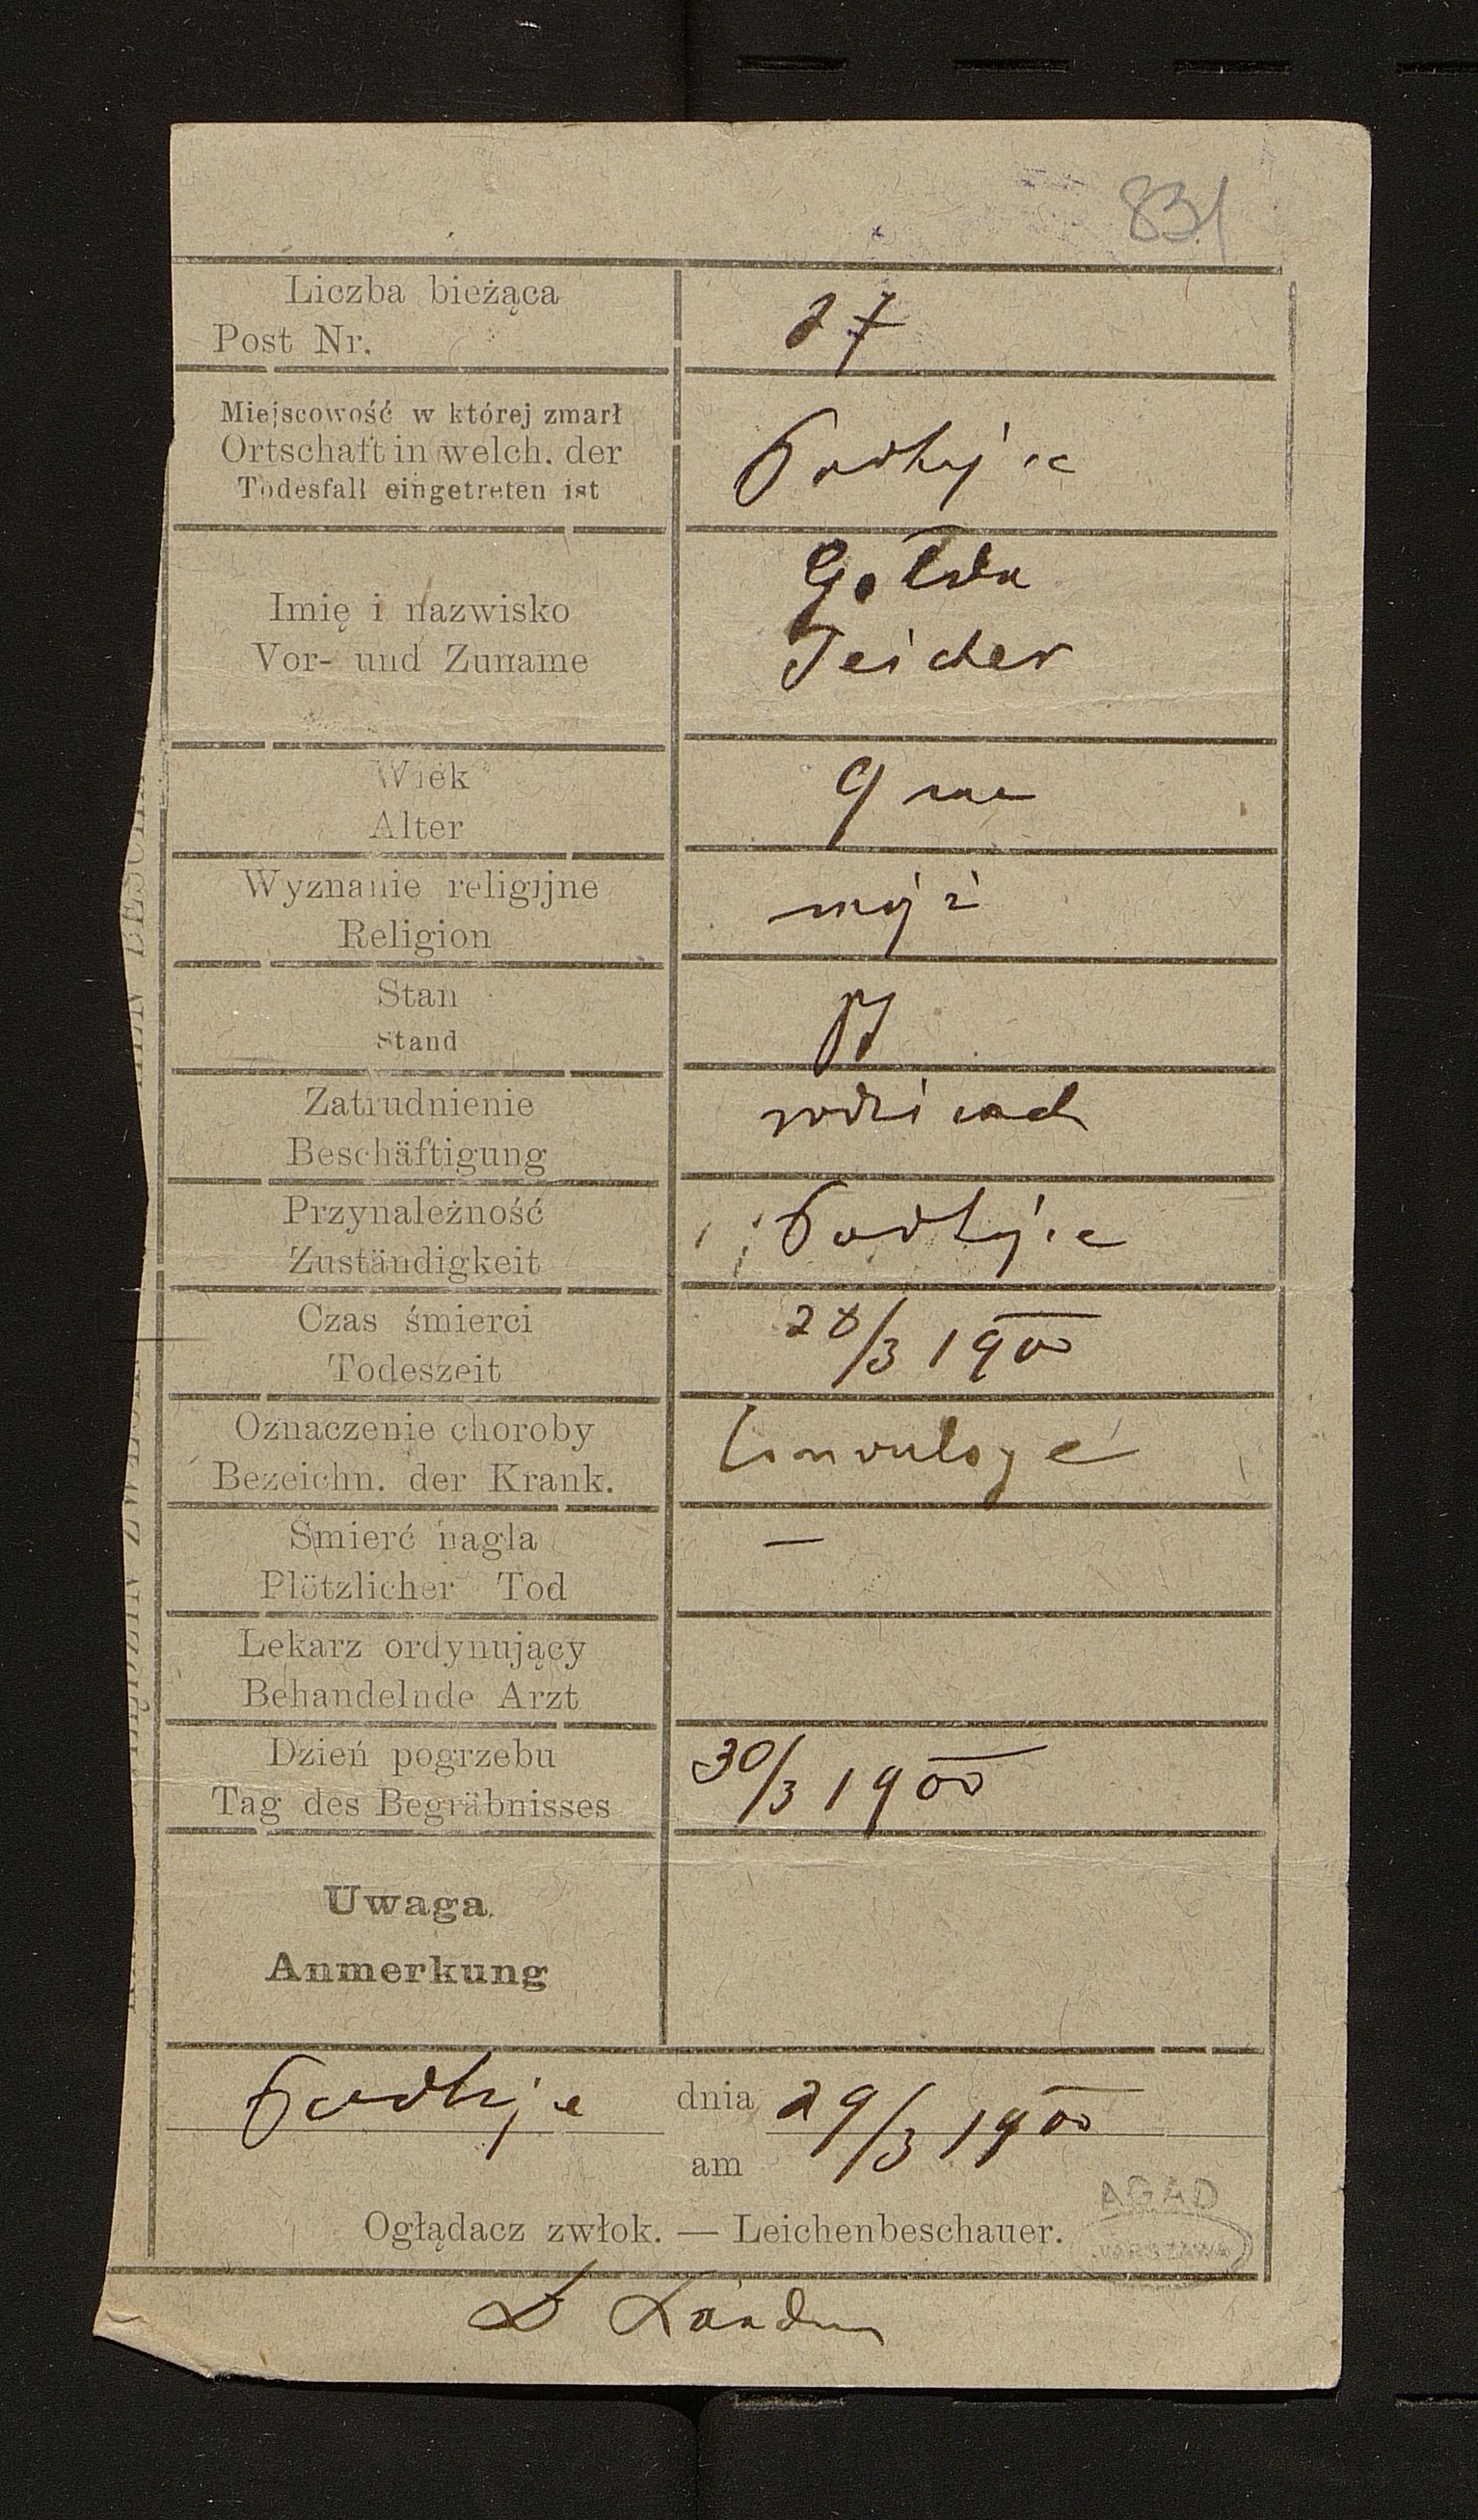 831
Liczba bieżąca
Post Nr.
27
Miejscowość w której zmarł
Ortschaft in welch. der
Todesfall eingetreten ist
Podhajce
Imię i nazwisko
Vor- und Zuname
Golda
Teicher
Wiek
Alter
9
Wyznanie religijne
Religion
mojż
Stan
Stand
Zatrudnienie
Beschäftigung
Przynależność
Zuständigkeit
Podhajce
Czas śmierci
Todeszeit
28/3 1900
Oznaczenie choroby
Bezeichn. der Krank.
Smierć nagla
Plötzlicher Tod
—
Lekarz ordynujący
Behandelnde Arzt
Dzień pogrzebu
Tag des Begräbnisses
30/3 1900
Uwaga.
Anmerkung
Podhajce dnia 29/3 1900
am
Ogłądacz zwłok. — Leichenbeschauer.
AGAD
WARSZAWA